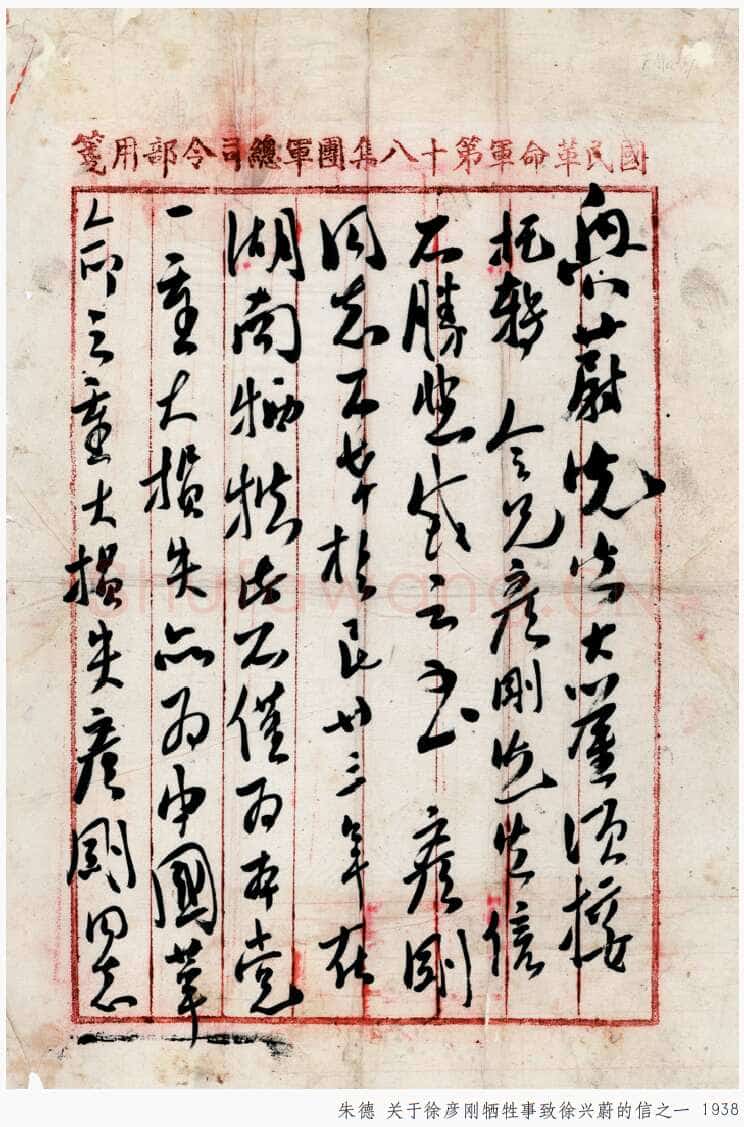 國民革命軍第十八集團軍總司令部用箋
興蔚先生大鑒頃接
托轉 令兄彥剛先生信
不勝悲感之至 彥剛
同志不幸於民廿三年在
湖南牺牲此不僅为本党
一重大損失亦为中國革
命之重大損失彥剛同志
shufawang.CN
朱德 关于徐彦刚牺牲事致徐兴蔚的信之一 1938